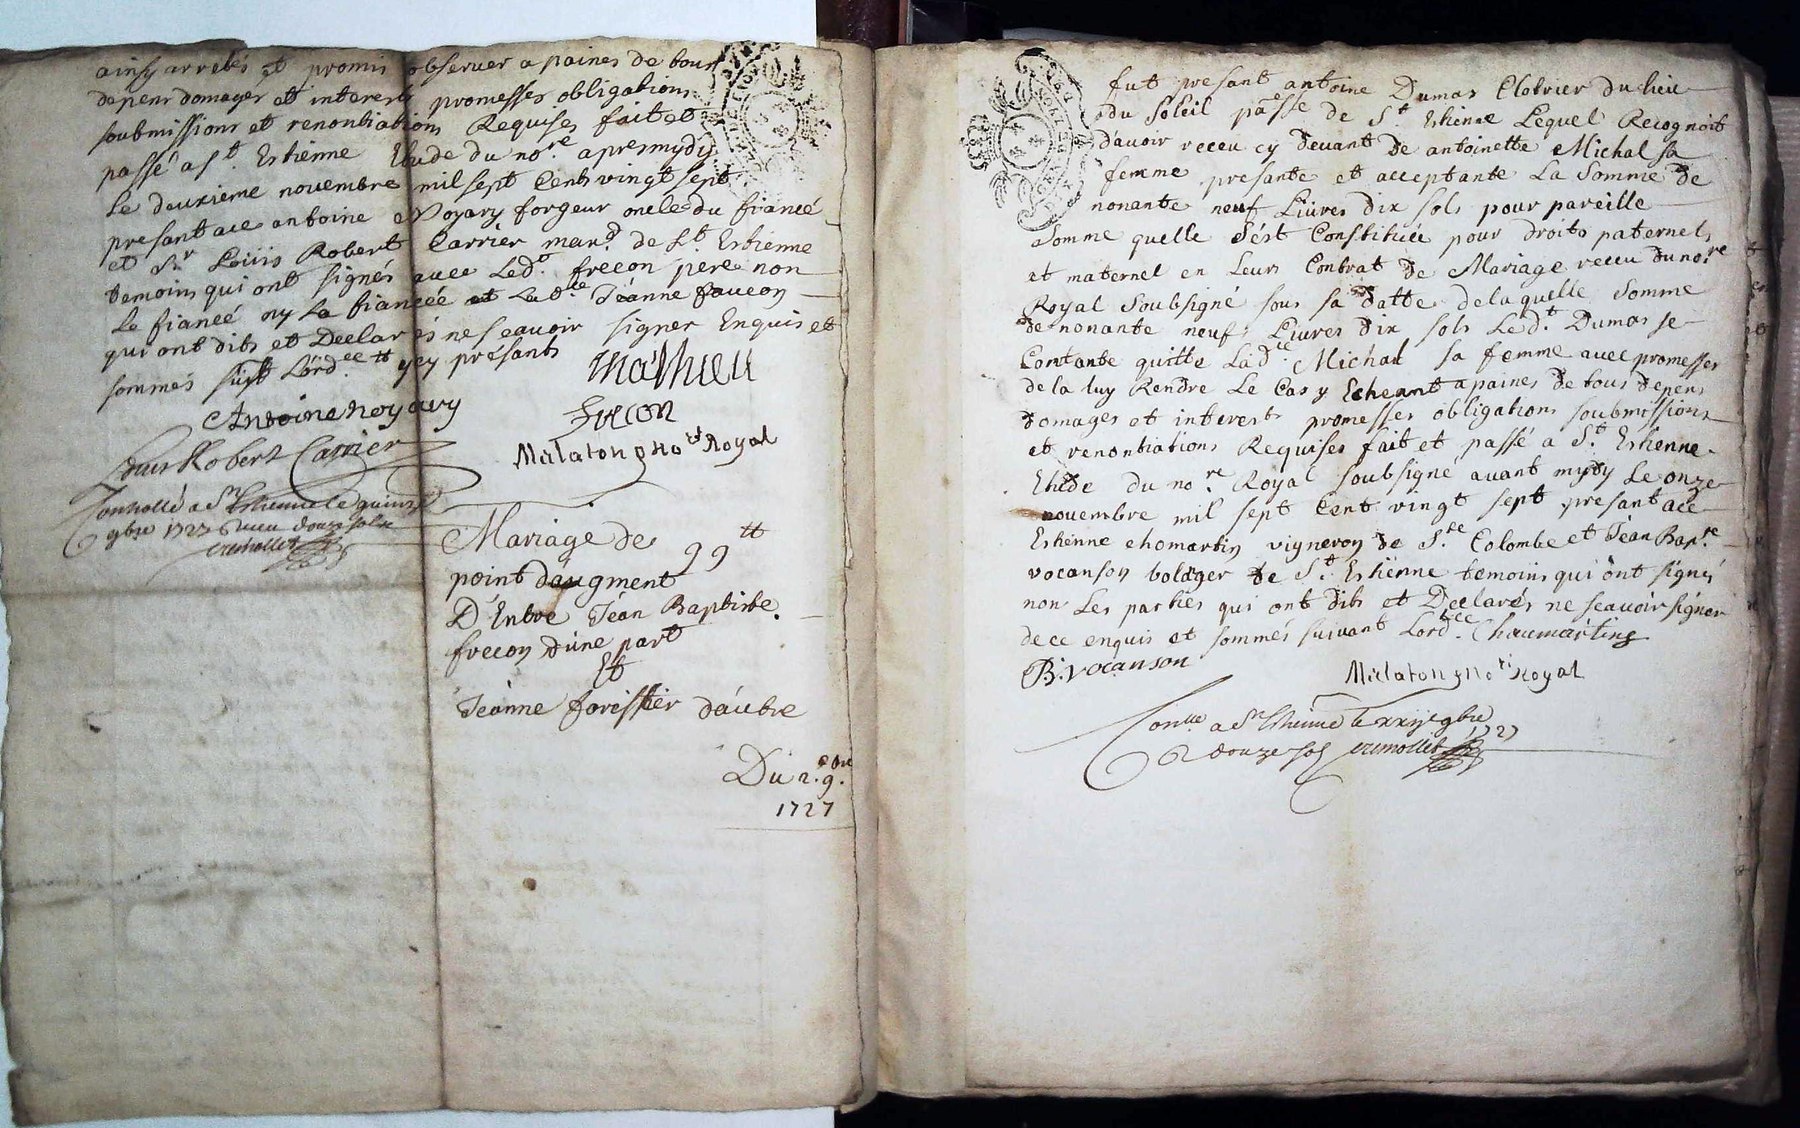 ainsy arretés et promis observer a paines de tous
depens domages et interests promesses obligations
soubmissions et renontiations Requises fait et
passé a St. Estienne Etude du nore. apresmydy
Le deuxieme novembre mil sept Cents vingt sept
presant ace antoine Noyary forgeur oncle du fiancé
et Sr. Loüis Robert Carrier mard. de St. Estienne
temoins qui ont signés avec Led. frecon pere non
Le fiancé ny La fiancée et Lad.lle Jéanne faucon
qui ont dits et Declarés ne scavoir signer Enquis et
sommés suivt Lord.ce yey présants
Mathieu
Antoine noyary
frecon
Louis Robert Carrier
Malaton no.re Royal
Controllé a St Estienne le quinze
9bre 1727 Receu douze sols
cremollet
Mariage de
99tt
point daugment
D'Entre Jéan Baptiste
frecon d'une part
Et
Jéanne forissier d'autre
Du 2. 9.bre
1727
fut presant antoine Dumas Clotrier du lieu
du Soleil passe de St. Estienne Lequel Recognoit
d'avoir receu cy devant de antoinette Michal sa
femme presante et acceptante La Somme de
nonante neuf Livres dix sols pour pareille
Somme quelle s'ést Constitüée pour droits paternels
et maternel en Leurs Contrat de Mariage receu du no.re
Royal Soubsigné sous sa datte de laquelle Somme
de nonante neuf Livres dix sols Led.t Dumas se
Contante quitte Lad.te Michal sa femme avec promesses
de la luy Rendre Le Cas y Echeant a paines de tous depens
domages et interests promesses obligations soubmissions
et renontiations Requises fait et passé a St. Estienne
Etude du no.re Royal soubsigné avant mydy Le onze
novembre mil sept Cent vingt sept presant ace
Estienne chomartin vigneron de Ste. Colombe et Jéan Bap.te
vocanson bolãger de St. Estienne temoins qui ont signés
non Les parties qui ont dits et Declarés ne scavoir signer
de ce enquis et sommés suivant Lord.ce Chaumartin
B. vocanson
Malaton no.re Royal
Con.llé a St Estienne le xxij 9bre
1727
R douze sols cremollet